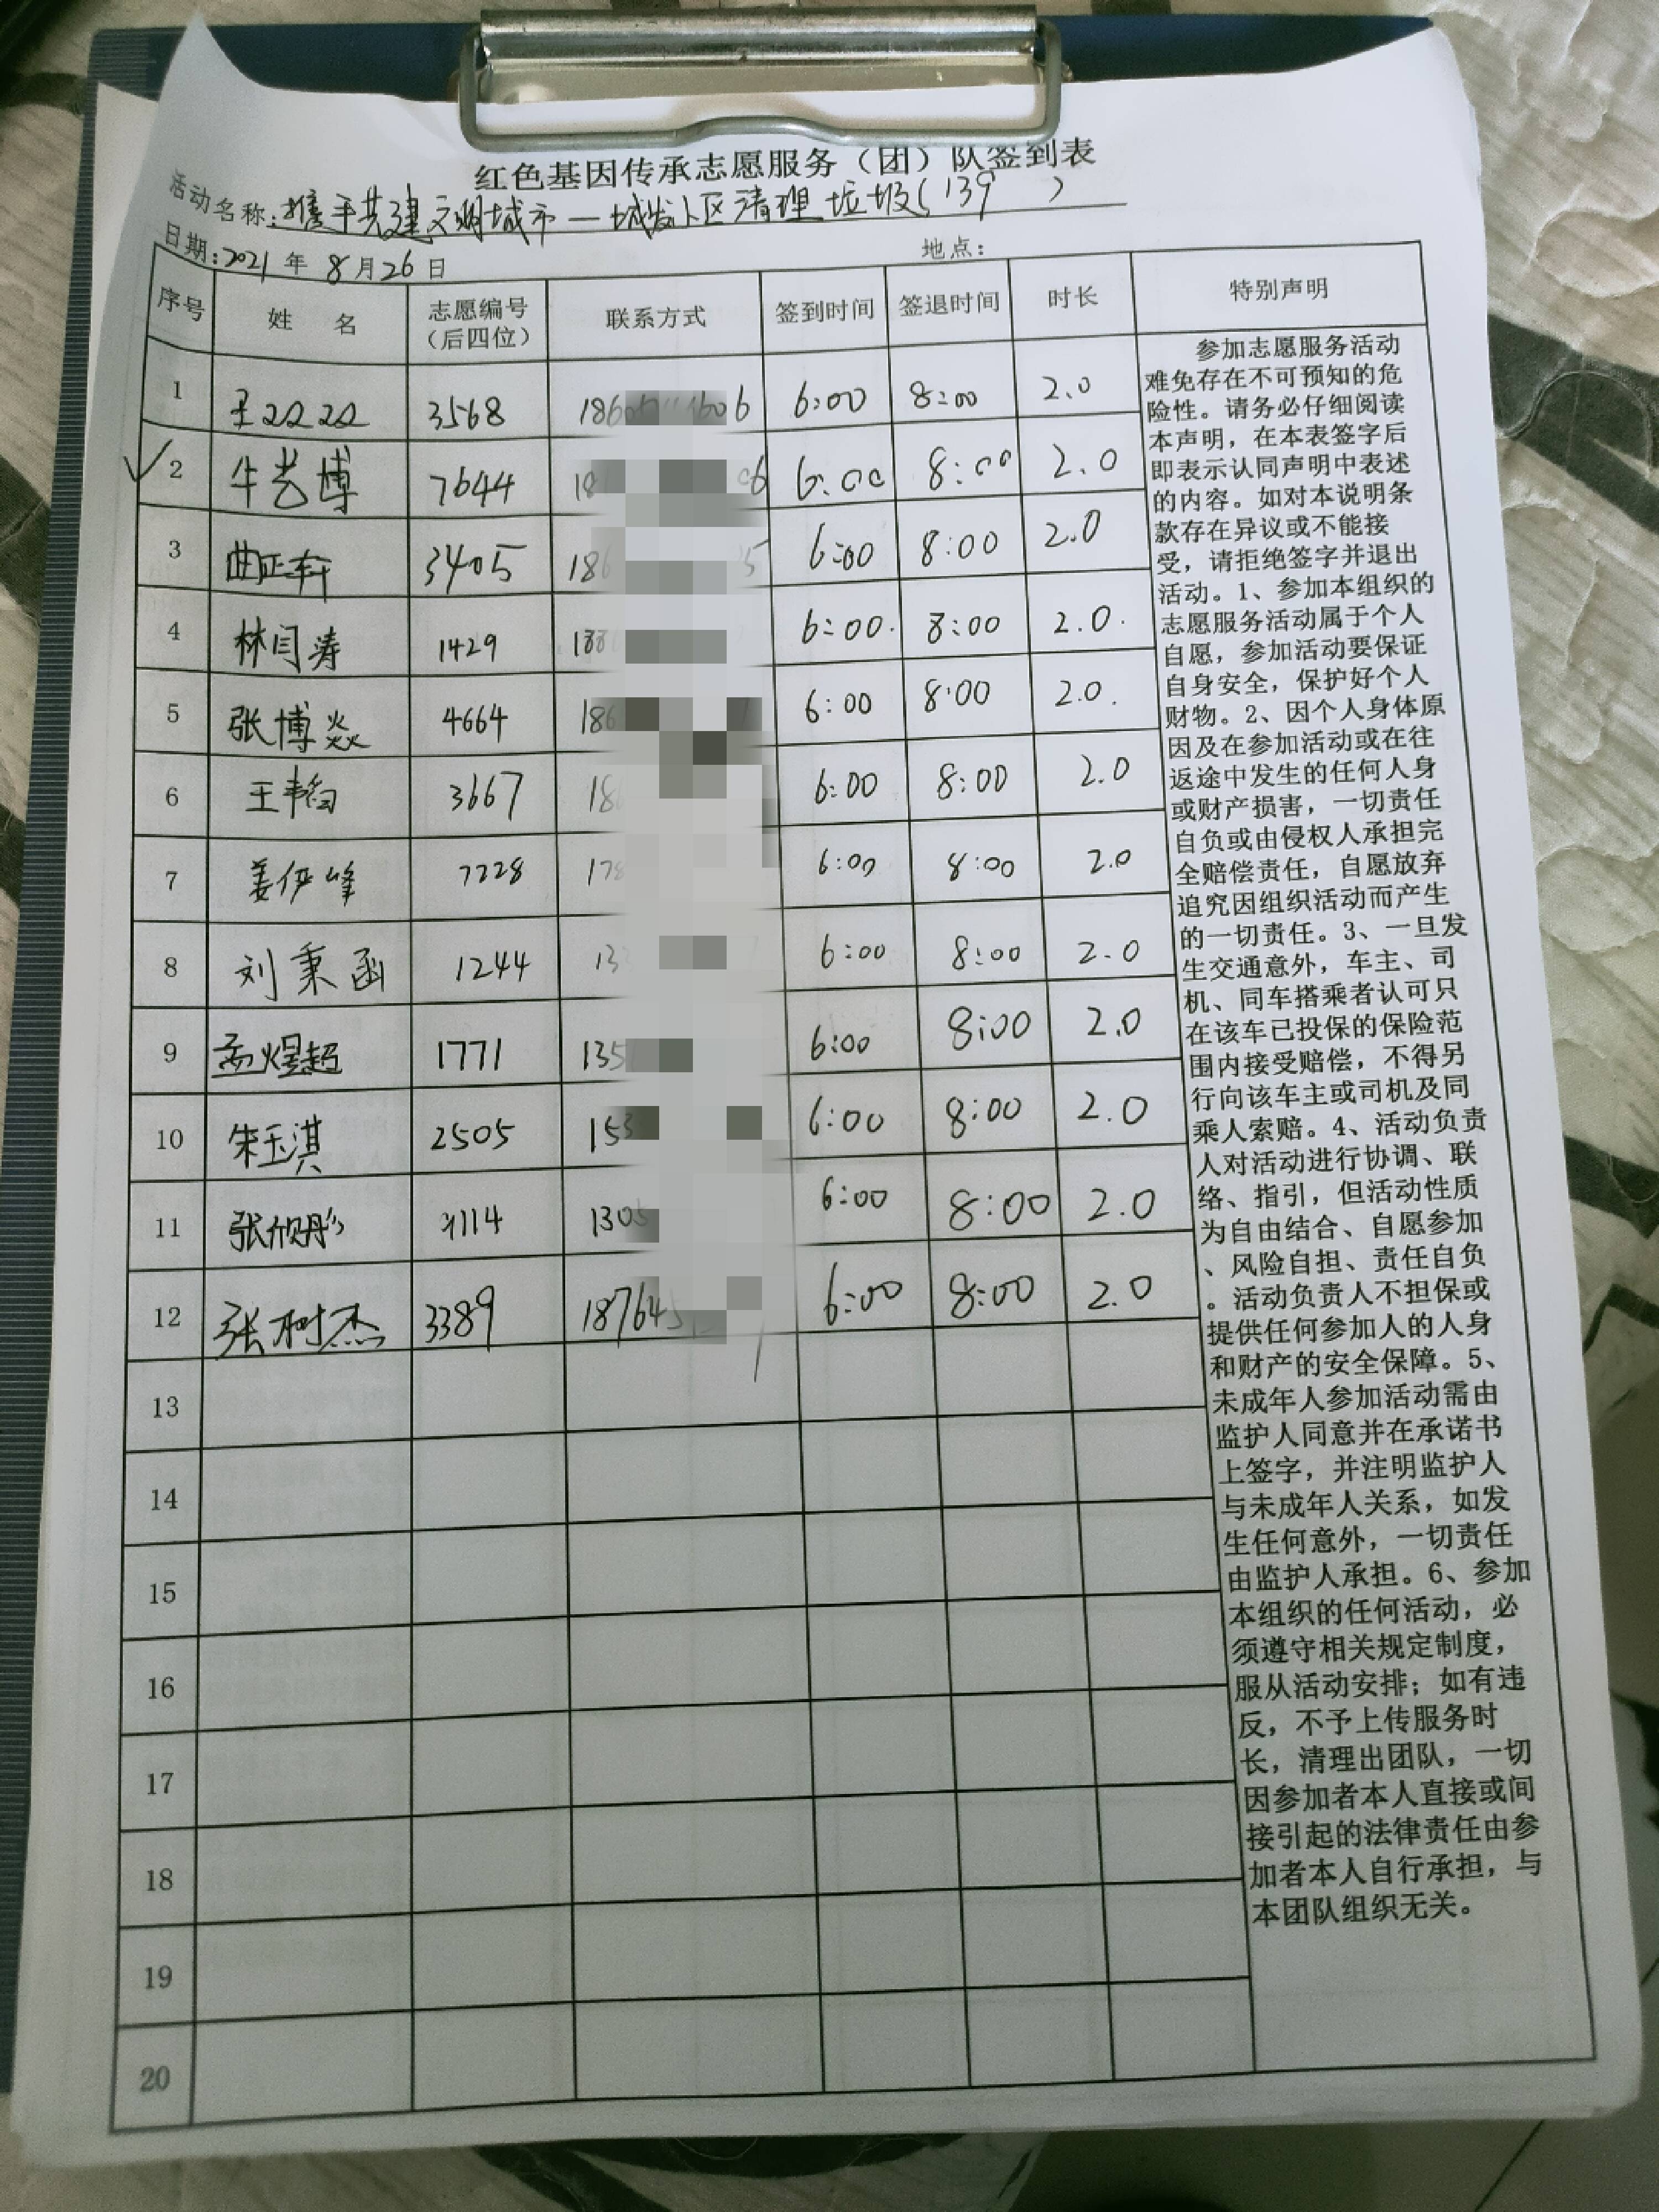 红色基因传承志愿服务（团）队签到表
活动名称：携手共建文明城市—城发小区清理垃圾(139 )
日期：2021年 8月26日 地点：
序号 姓 名 志愿编号（后四位） 联系方式 签到时间 签退时间 时长 特别声明
1 王 3568 186 6 6:00 8:00 2.0
2 牛艺博 7644 18 6 6:00 8:00 2.0
3 曲正轩 3405 186 5 6:00 8:00 2.0
4 林闫涛 1429 188 6:00 8:00 2.0
5 张博焱 4664 186 6:00 8:00 2.0
6 王韩 3667 18 6:00 8:00 2.0
7 姜伊峰 7228 178 6:00 8:00 2.0
8 刘秉函 1244 13 6:00 8:00 2.0
9 孟煜超 1771 135 6:00 8:00 2.0
10 朱玉淇 2505 153 6:00 8:00 2.0
11 张 1114 1305 6:00 8:00 2.0
12 张树杰 3389 18764 6:00 8:00 2.0
13
14
15
16
17
18
19
20
参加志愿服务活动
难免存在不可预知的危
险性。请务必仔细阅读
本声明，在本表签字后
即表示认同声明中表述
的内容。如对本说明条
款存在异议或不能接
受，请拒绝签字并退出
活动。1、参加本组织的
志愿服务活动属于个人
自愿，参加活动要保证
自身安全，保护好个人
财物。2、因个人身体原
因及在参加活动或在往
返途中发生的任何人身
或财产损害，一切责任
自负或由侵权人承担完
全赔偿责任，自愿放弃
追究因组织活动而产生
的一切责任。3、一旦发
生交通意外，车主、司
机、同车搭乘者认可只
在该车已投保的保险范
围内接受赔偿，不得另
行向该车主或司机及同
乘人索赔。4、活动负责
人对活动进行协调、联
络、指引，但活动性质
为自由结合、自愿参加
、风险自担、责任自负
。活动负责人不担保或
提供任何参加人的人身
和财产的安全保障。5、
未成年人参加活动需由
监护人同意并在承诺书
上签字，并注明监护人
与未成年人关系，如发
生任何意外，一切责任
由监护人承担。6、参加
本组织的任何活动，必
须遵守相关规定制度，
服从活动安排；如有违
反，不予上传服务时
长，清理出团队，一切
因参加者本人直接或间
接引起的法律责任由参
加者本人自行承担，与
本团队组织无关。